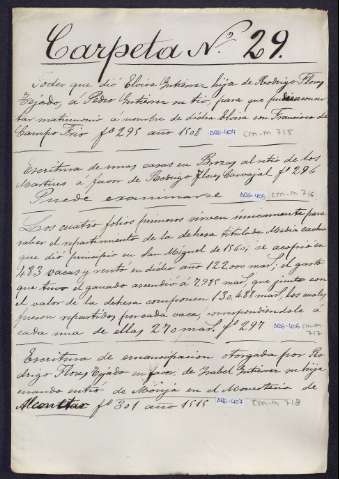 Carpeta Nº 29.
Poder que dió Elvira Gutiérrez hija de Rodrigo Flores
Tejado, á Pedro Gutiérrez su tío, para que pudiese
matrimonio á nombre de dicha Elvira con Francisco de
Campo Frio fº 295 año 1508 DOC-404 CM-M 715
Escritura de unas casas en Brozas al sitio de los
Mártires á favor de Rodrigo Flores Carvajal fº 296
Puede examinarse DOC-405 CM-M 716
Los cuatro folios primeros sirven únicamente para
saber el repartimiento de la dehesa titulada Media
que dió principio en San Miguel de 1560, se acopió en
483 vacas y rentó en dicho año 122.000 mars, el gasto
que tuvo el ganado ascendió á 7.985 mars, que junto con
el valor de la dehesa componen 130.485 mars, los cuales
fueron repartidos por cada vaca, correspondiéndole á
cada una de ellas 270 mars, fº 297 DOC-406 CM-M 717
Escritura de emancipacion otorgada por Ro
drigo Flores Tejado en favor de Isabel Gutiérrez su hija
cuando entró de Monja en el Monasterio de
fº 301 año 1515 DOC-407 CM-M 718